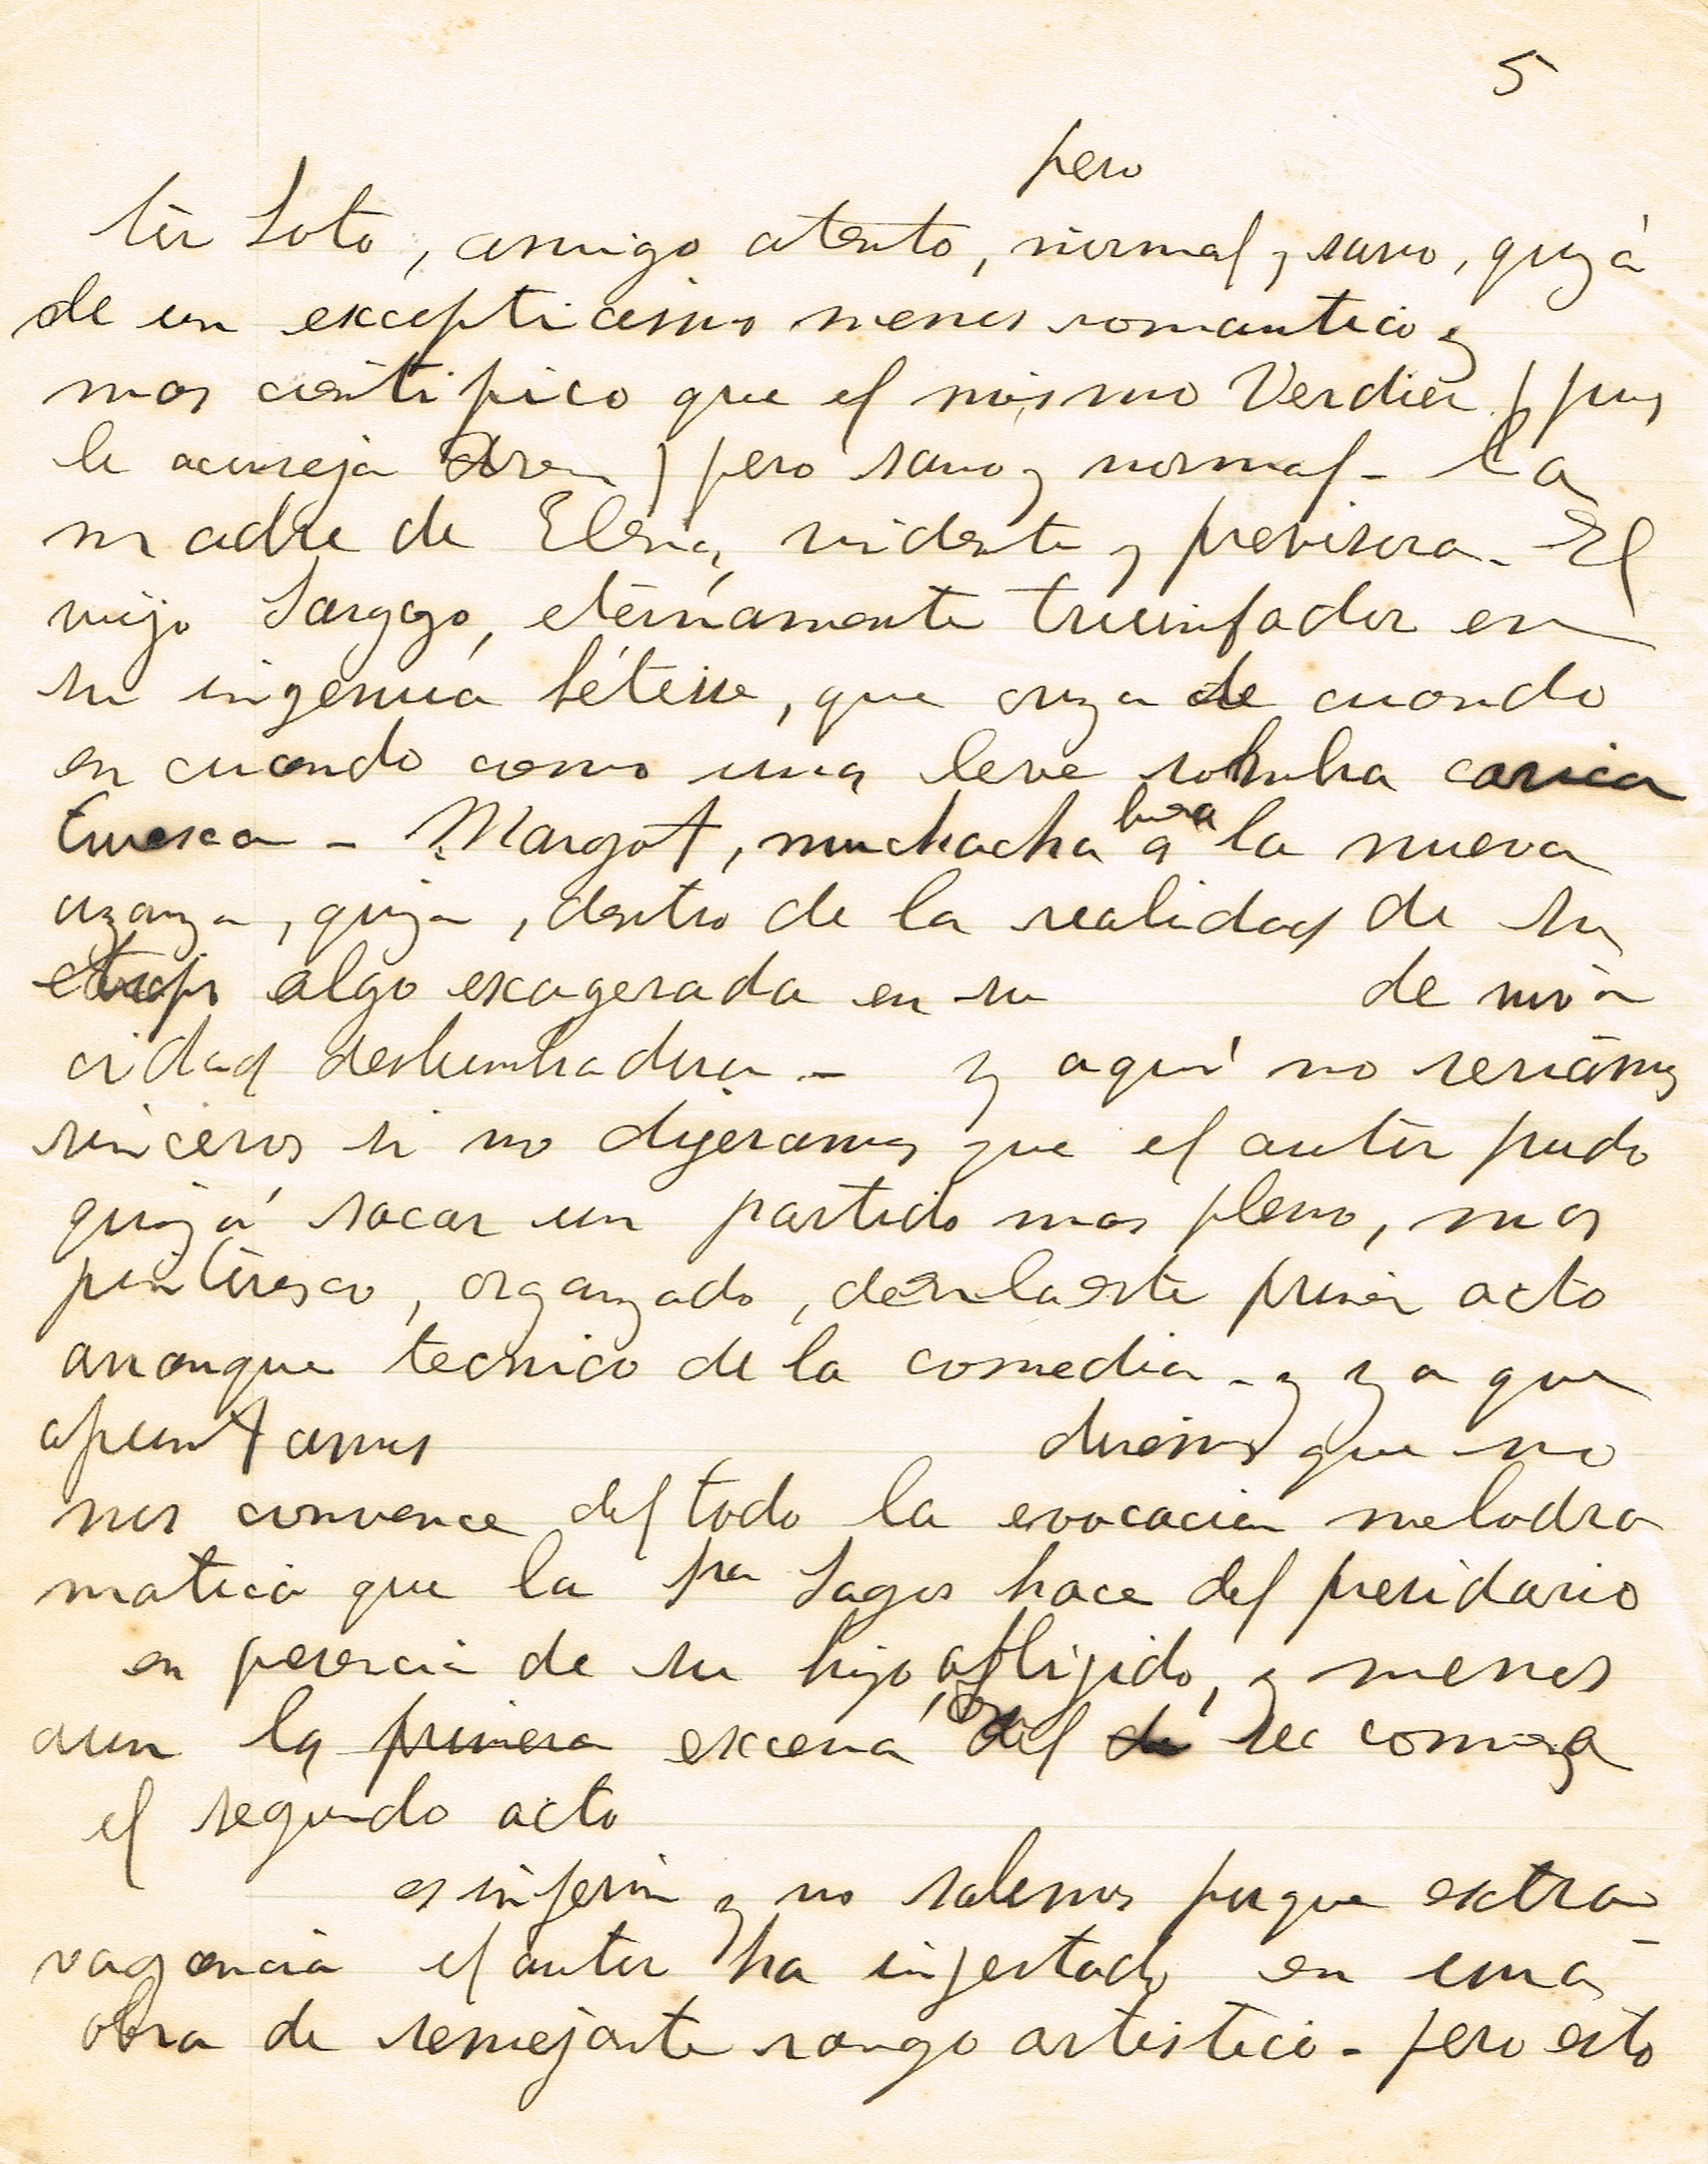 5
pero
tor Soto, amigo atento, normal y sano, quizá
de un excepticismo menos romantico y
mas cientifico que el mismo Verdier (pues
le aconseja) pero sano y normal - La
madre de Elena, vidente y previsora - El
viejo eternamente triunfador en
su ingenua bétisse, que cruza de cuando
en cuando como una leve sombra carica
turesca - Margot, muchacha a la nueva
uzanza, quiza, dentro de la realidad de su
algo exagerada en su de
cidad deslumbradora - y aquí no seriamos
sinceros si no dijeramos que el autor pudo
quizá sacar un partido mas pleno, mas
pintoresco, organizado, de este primer acto
arranque tecnico de la comedia - y ya que
apuntamos que no
nos convence del todo la evocacion melodra
matica que la Sra Lagos hace del presidario
en presencia de su hijo afligido, y menos
aun la primera escena del comienza
el segundo acto
es inferior y no sabemos porque extra
vagancia el autor ha injertado en una
obra de semejante rango artistico - pero esto